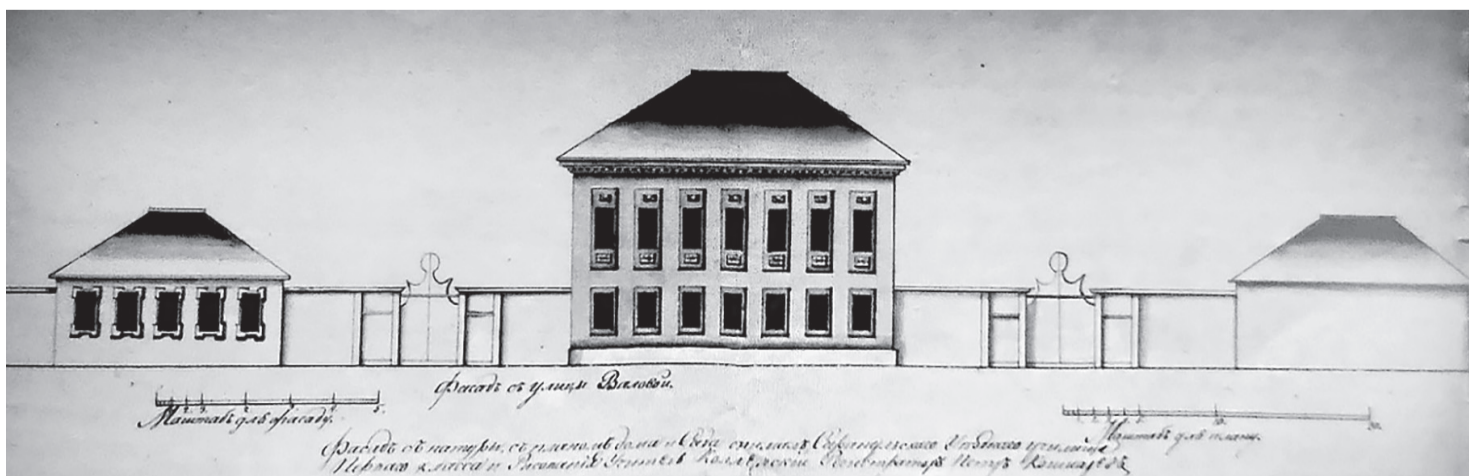 Фасадъ съ улицы Валовой.
5.
Масштабъ для фасаду.
10. 20.
Масштабъ для плану.
Фасадъ съ натуры, съ планомъ дома и Сада снималъ Серпуховскаго Уѣзднаго училища
Перваго класса и Рисованія Учитель Коллежскій Регистраторъ Петръ